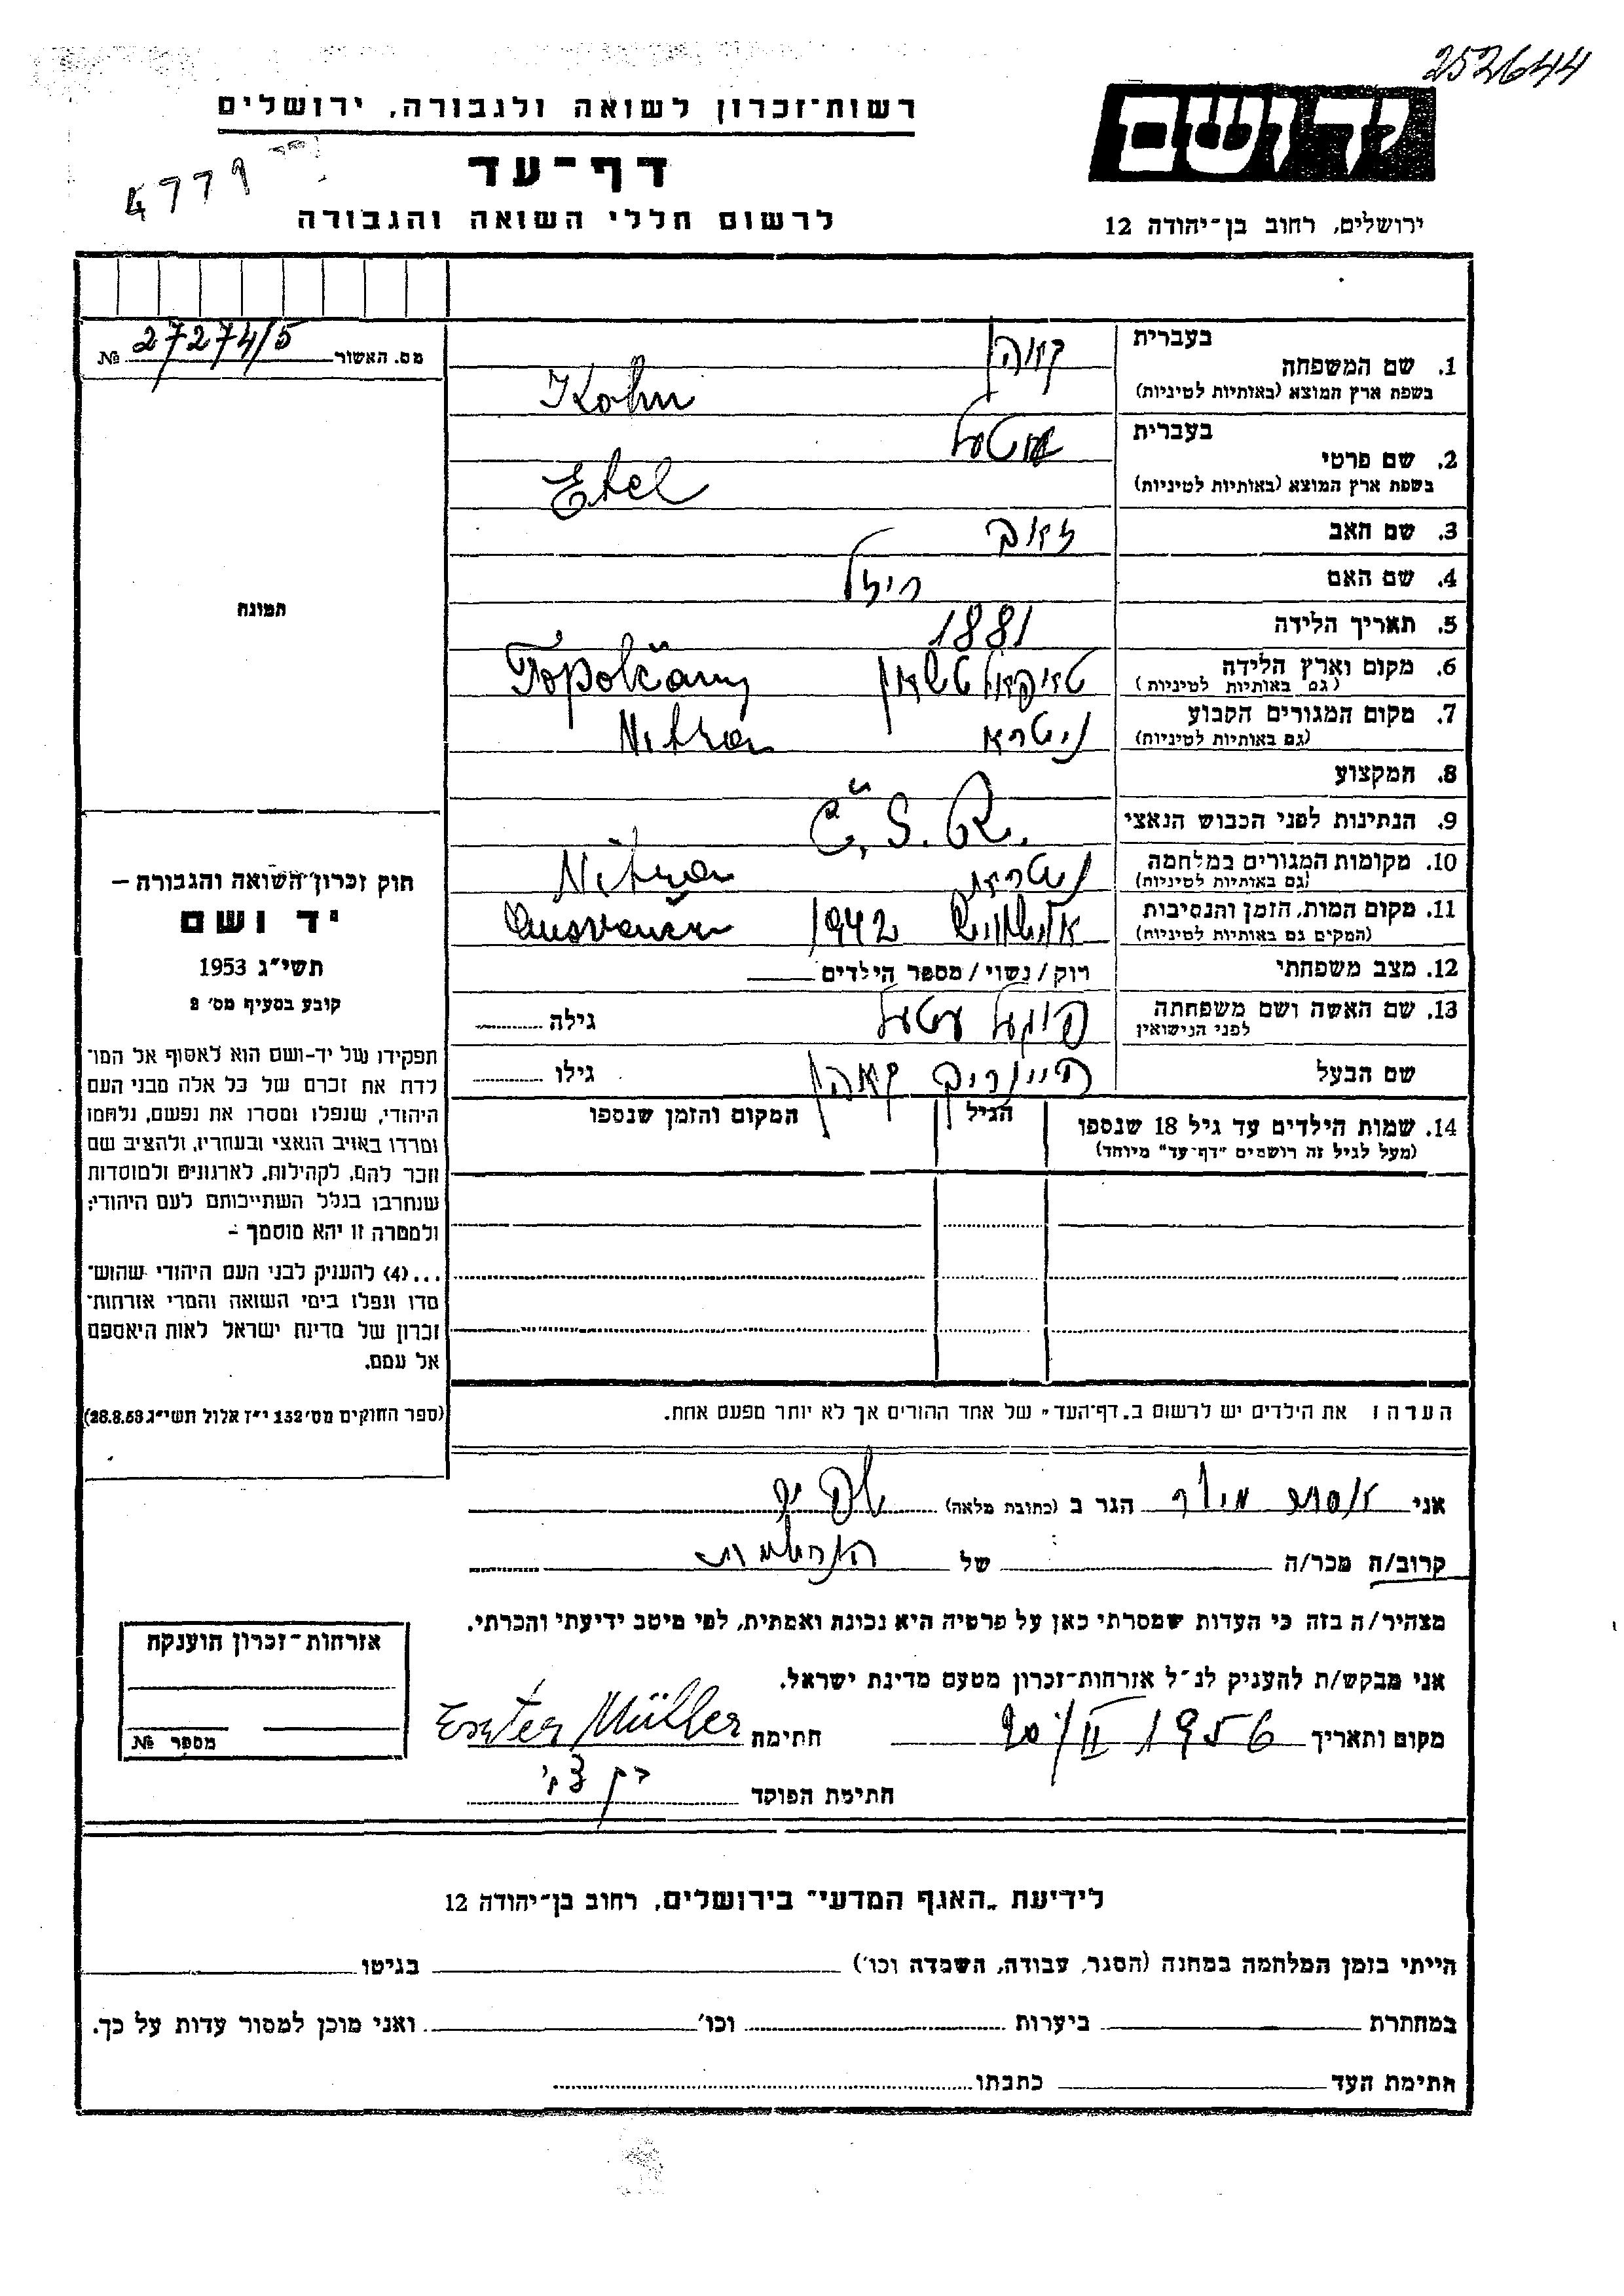 252644
יד ושם
ירושלים, רחוב בן־יהודה 12
רשות־זכרון לשואה ולגבורה, ירושלים
דף־עד
לרשום חללי השואה והגבורה
4779
מס. האשור 27274/5 №
תמונה
חוק זכרון השואה והגבורה –
יד ושם
תשי״ג 1953
קובע בסעיף מס׳ 2
תפקידו של יד-ושם הוא לאסוף אל המו־
לדת את זכרם של כל אלה מבני העם
היהודי, שנפלו ומסרו את נפשם, נלחמו
ומרדו באויב הנאצי ובעוזריו, ולהציב שם
וזכר להם, לקהילות, לארגונים ולמוסדות
שנחרבו בגלל השתייכותם לעם היהודי;
ולמטרה זו יהא מוסמך –
...(4) להעניק לבני העם היהודי שהוש־
מדו ונפלו בימי השואה והמרי אזרחות־
זכרון של מדינת ישראל לאות היאספם
אל עמם.
(ספר החוקים מס׳ 132 י״ז אלול תשי״ג 28.8.53)
1. שם המשפחה
בעברית קאהן
בשפת ארץ המוצא (באותיות לטיניות) Kohn
2. שם פרטי
בעברית עטעל
בשפת ארץ המוצא (באותיות לטיניות) Etel
3. שם האב
4. שם האם
5. תאריך הלידה 1881
6. מקום וארץ הלידה Topolčany
(גם באותיות לטיניות)
7. מקום המגורים הקבוע ניטרא Nitra
(גם באותיות לטיניות)
8. המקצוע
9. הנתינות לפני הכבוש הנאצי Č. S. R.
10. מקומות המגורים במלחמה ניטרא Nitra
(גם באותיות לטיניות)
11. מקום המות, הזמן והנסיבות 1942
(המקום גם באותיות לטיניות)
12. מצב משפחתי רוק / נשוי / מספר הילדים
13. שם האשה ושם משפחתה עטעל גילה
לפני הנישואין
שם הבעל היינריך קאהן גילו
14. שמות הילדים עד גיל 18 שנספו הגיל המקום והזמן שנספו
(מעל לגיל זה רושמים "דף־עד" מיוחד)
הערה: את הילדים יש לרשום ב„דף־העד״ של אחד ההורים אך לא יותר מפעם אחת.
אני אסתר מילר הגר ב (כתובת מלאה)
קרוב/ה מכר/ה של
מצהיר/ה בזה כי העדות שמסרתי כאן על פרטיה היא נכונה ואמתית, לפי מיטב ידיעתי והכרתי.
אני מבקש/ת להעניק לנ״ל אזרחות־זכרון מטעם מדינת ישראל.
מקום ותאריך 20/II 1956 חתימת Eszter Müller
חתימת הפוקד
אזרחות־זכרון הוענקה
מספר №
לידיעת „האגף המדעי״ בירושלים, רחוב בן־יהודה 12
הייתי בזמן המלחמה במחנה (הסגר, עבודה, השמדה וכו׳) בגיטו
במחתרת ביערות וכו׳ ואני מוכן למסור עדות על כך.
חתימת העד כתבתו